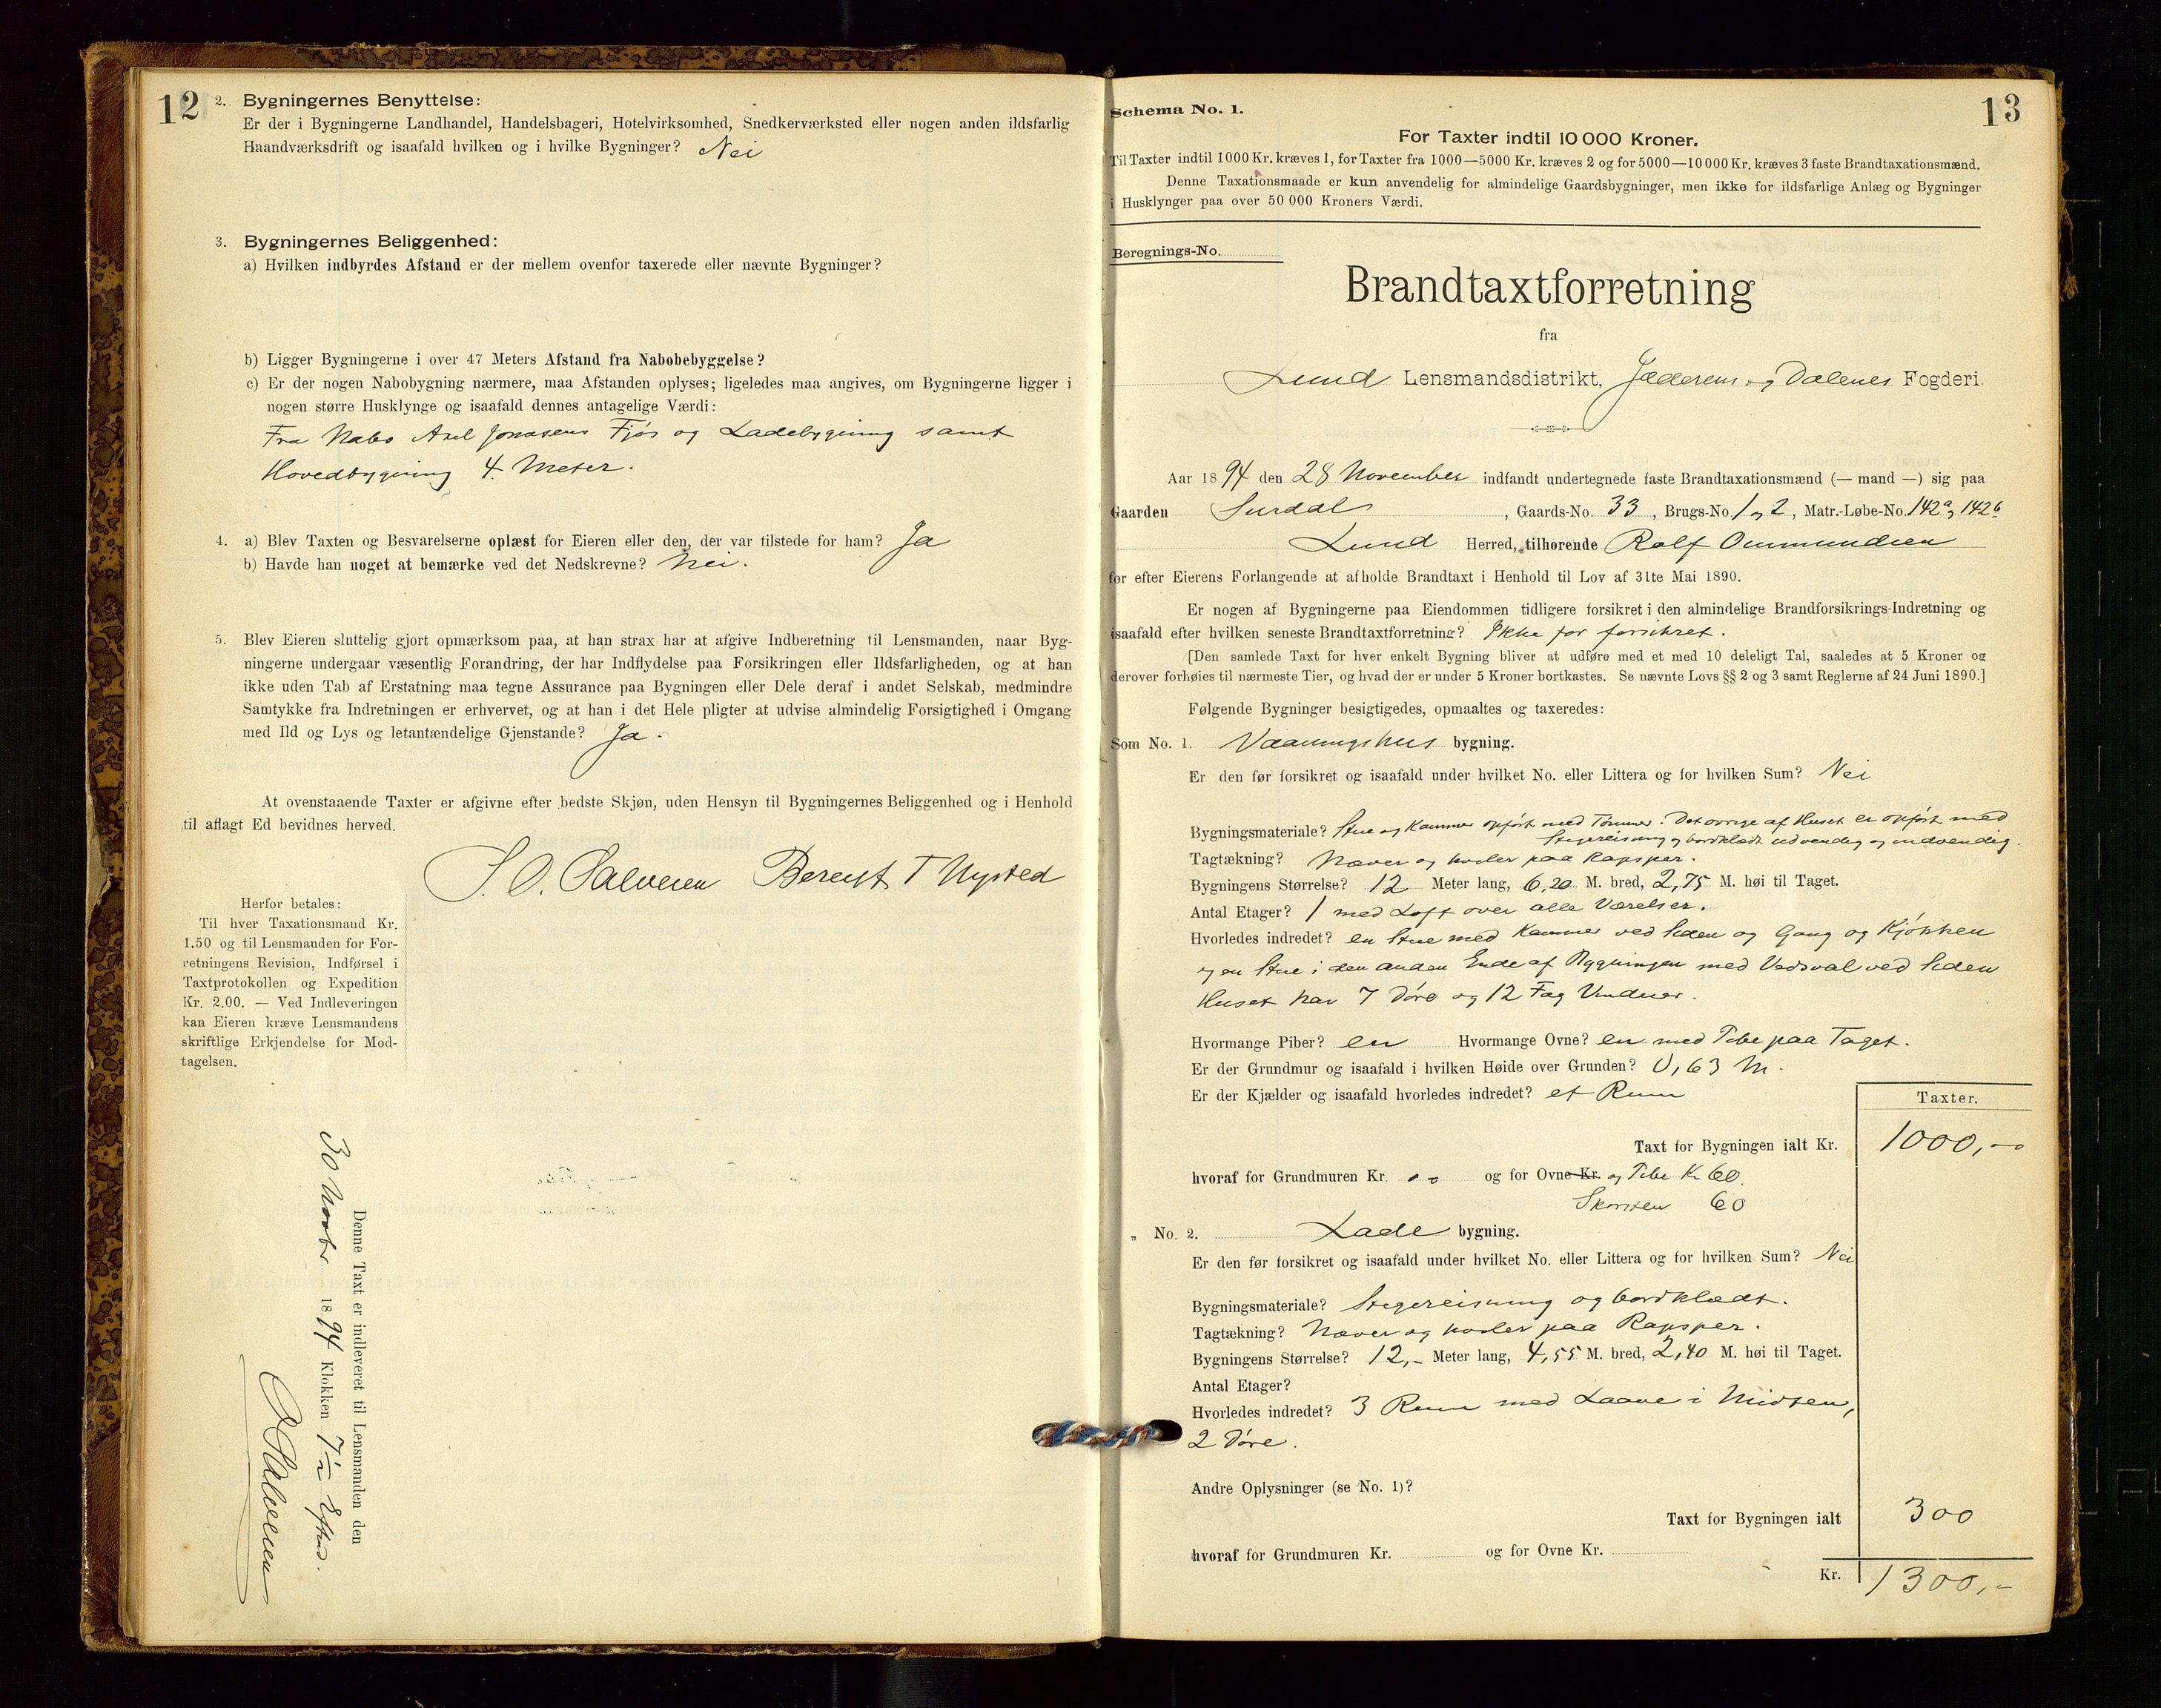 12
2. Bygningernes Benyttelse:
Er der i Bygningerne Landhandel, Handelsbageri, Hotelvirksomhed, Snedkerværksted eller nogen anden ildsfarlig
Haandværksdrift og isaafald hvilken og i hvilke Bygninger? Nei
3. Bygningernes Beliggenhed:
a) Hvilken indbyrdes Afstand er der mellem ovenfor taxerede eller nævnte Bygninger?
b) Ligger Bygningerne i over 47 Meters Afstand fra Nabobebyggelse?
c) Er der nogen Nabobygning nærmere, maa Afstanden oplyses; ligeledes maa angives, om Bygningerne ligger i
nogen større Husklynge og isaafald dennes antagelige Værdi:
Fra Nabo Axel Jonasens Fjøs og Ladebygning samt
Hovedbygning 4 Meter.
4. a) Blev Taxten og Besvarelserne oplæst for Eieren eller den, der var tilstede for ham? Ja
b) Havde han noget at bemærke ved det Nedskrevne? Nei.
5. Blev Eieren sluttelig gjort opmærksom paa, at han strax har at afgive Indberetning til Lensmanden, naar Byg-
ningerne undergaar væsentlig Forandring, der har Indflydelse paa Forsikringen eller Ildsfarligheden, og at han
ikke uden Tab af Erstatning maa tegne Assurance paa Bygningen eller Dele deraf i andet Selskab, medmindre
Samtykke fra Indretningen er erhvervet, og at han i det Hele pligter at udvise almindelig Forsigtighed i Omgang
med Ild og Lys og letantændelige Gjenstande? Ja.
At ovenstaaende Taxter er afgivne efter bedste Skjøn, uden Hensyn til Bygningernes Beliggenhed og i Henhold
til aflagt Ed bevidnes herved.
S. O. Salvesen Berent T Nysted
Herfor betales:
Til hver Taxationsmand Kr.
1.50 og til Lensmanden for For-
retningens Revision, Indførsel i
Taxtprotokollen og Expedition
Kr. 2.00. — Ved Indleveringen
kan Eieren kræve Lensmandens
skriftlige Erkjendelse for Mod-
tagelsen.
Denne Taxt er indleveret til Lensmanden den
30 Novbr 1894 Klokken 7½ Eftmd.
Salvesen
13
Schema No. 1.
For Taxter indtil 10 000 Kroner.
Til Taxter indtil 1000 Kr. kræves 1, for Taxter fra 1000—5000 Kr. kræves 2 og for 5000—10 000 Kr. kræves 3 faste Brandtaxationsmænd.
Denne Taxationsmaade er kun anvendelig for almindelige Gaardsbygninger, men ikke for ildsfarlige Anlæg og Bygninger
i Husklynger paa over 50 000 Kroners Værdi.
Beregnings-No.
Brandtaxtforretning
fra
Lund Lensmandsdistrikt, Jæderens og Dalenes Fogderi.
Aar 1894 den 28 November indfandt undertegnede faste Brandtaxationsmænd (— mand —) sig paa
Gaarden Surdal, Gaards-No. 33, Brugs-No. 1 og 2, Matr.-Løbe-No. 142a og 142b
Lund Herred, tilhørende Rolf Ommundsen
for efter Eierens Forlangende at afholde Brandtaxt i Henhold til Lov af 31te Mai 1890.
Er nogen af Bygningerne paa Eiendommen tidligere forsikret i den almindelige Brandforsikrings-Indretning og
isaafald efter hvilken seneste Brandtaxtforretning? Ikke før forsikret.
[Den samlede Taxt for hver enkelt Bygning bliver at udføre med et med 10 deleligt Tal, saaledes at 5 Kroner og
derover forhøies til nærmeste Tier, og hvad der er under 5 Kroner bortkastes. Se nævnte Lovs §§ 2 og 3 samt Reglerne af 24 Juni 1890.]
Følgende Bygninger besigtigedes, opmaaltes og taxeredes:
Som No. 1. Vaaningshus bygning.
Er den før forsikret og isaafald under hvilket No. eller Littera og for hvilken Sum? Nei
Bygningsmateriale? Stue og Kammer opført med Tømmer. Det øvrige af Huset er opført med
Stegereisning og bordklædt udvendig og indvendig.
Tagtækning? Næver og heller paa Rapsper.
Bygningens Størrelse? 12 Meter lang, 6,20 M. bred, 2,75 M. høi til Taget.
Antal Etager? 1 med Loft over alle Værelser.
Hvorledes indredet? en Stue med Kammer ved Siden og Gang og Kjøkken
og en Stue i den anden Ende af Bygningen med Vedsval ved Siden
Huset har 7 Døre og 12 Fag Vinduer.
Hvormange Piber? en Hvormange Ovne? en med Pibe paa Taget.
Er der Grundmur og isaafald i hvilken Høide over Grunden? 0,63 M.
Er der Kjælder og isaafald hvorledes indredet? et Rum
Taxter.
Taxt for Bygningen ialt Kr. 1000,-
hvoraf for Grundmuren Kr. og for Ovne Kr. og Pibe Kr 60.
Skorsten 60
„ No. 2. Lade bygning.
Er den før forsikret og isaafald under hvilket No. eller Littera og for hvilken Sum? Nei
Bygningsmateriale? Stegereisning og bordklædt.
Tagtækning? Næver og heller paa Rapsper.
Bygningens Størrelse? 12,- Meter lang, 4,55 M. bred, 2,40 M. høi til Taget.
Antal Etager?
Hvorledes indredet? 3 Rum med Laave i Midten,
2 Døre.
Andre Oplysninger (se No. 1)?
Taxt for Bygningen ialt 300
hvoraf for Grundmuren Kr. og for Ovne Kr.
Kr. 1300,-